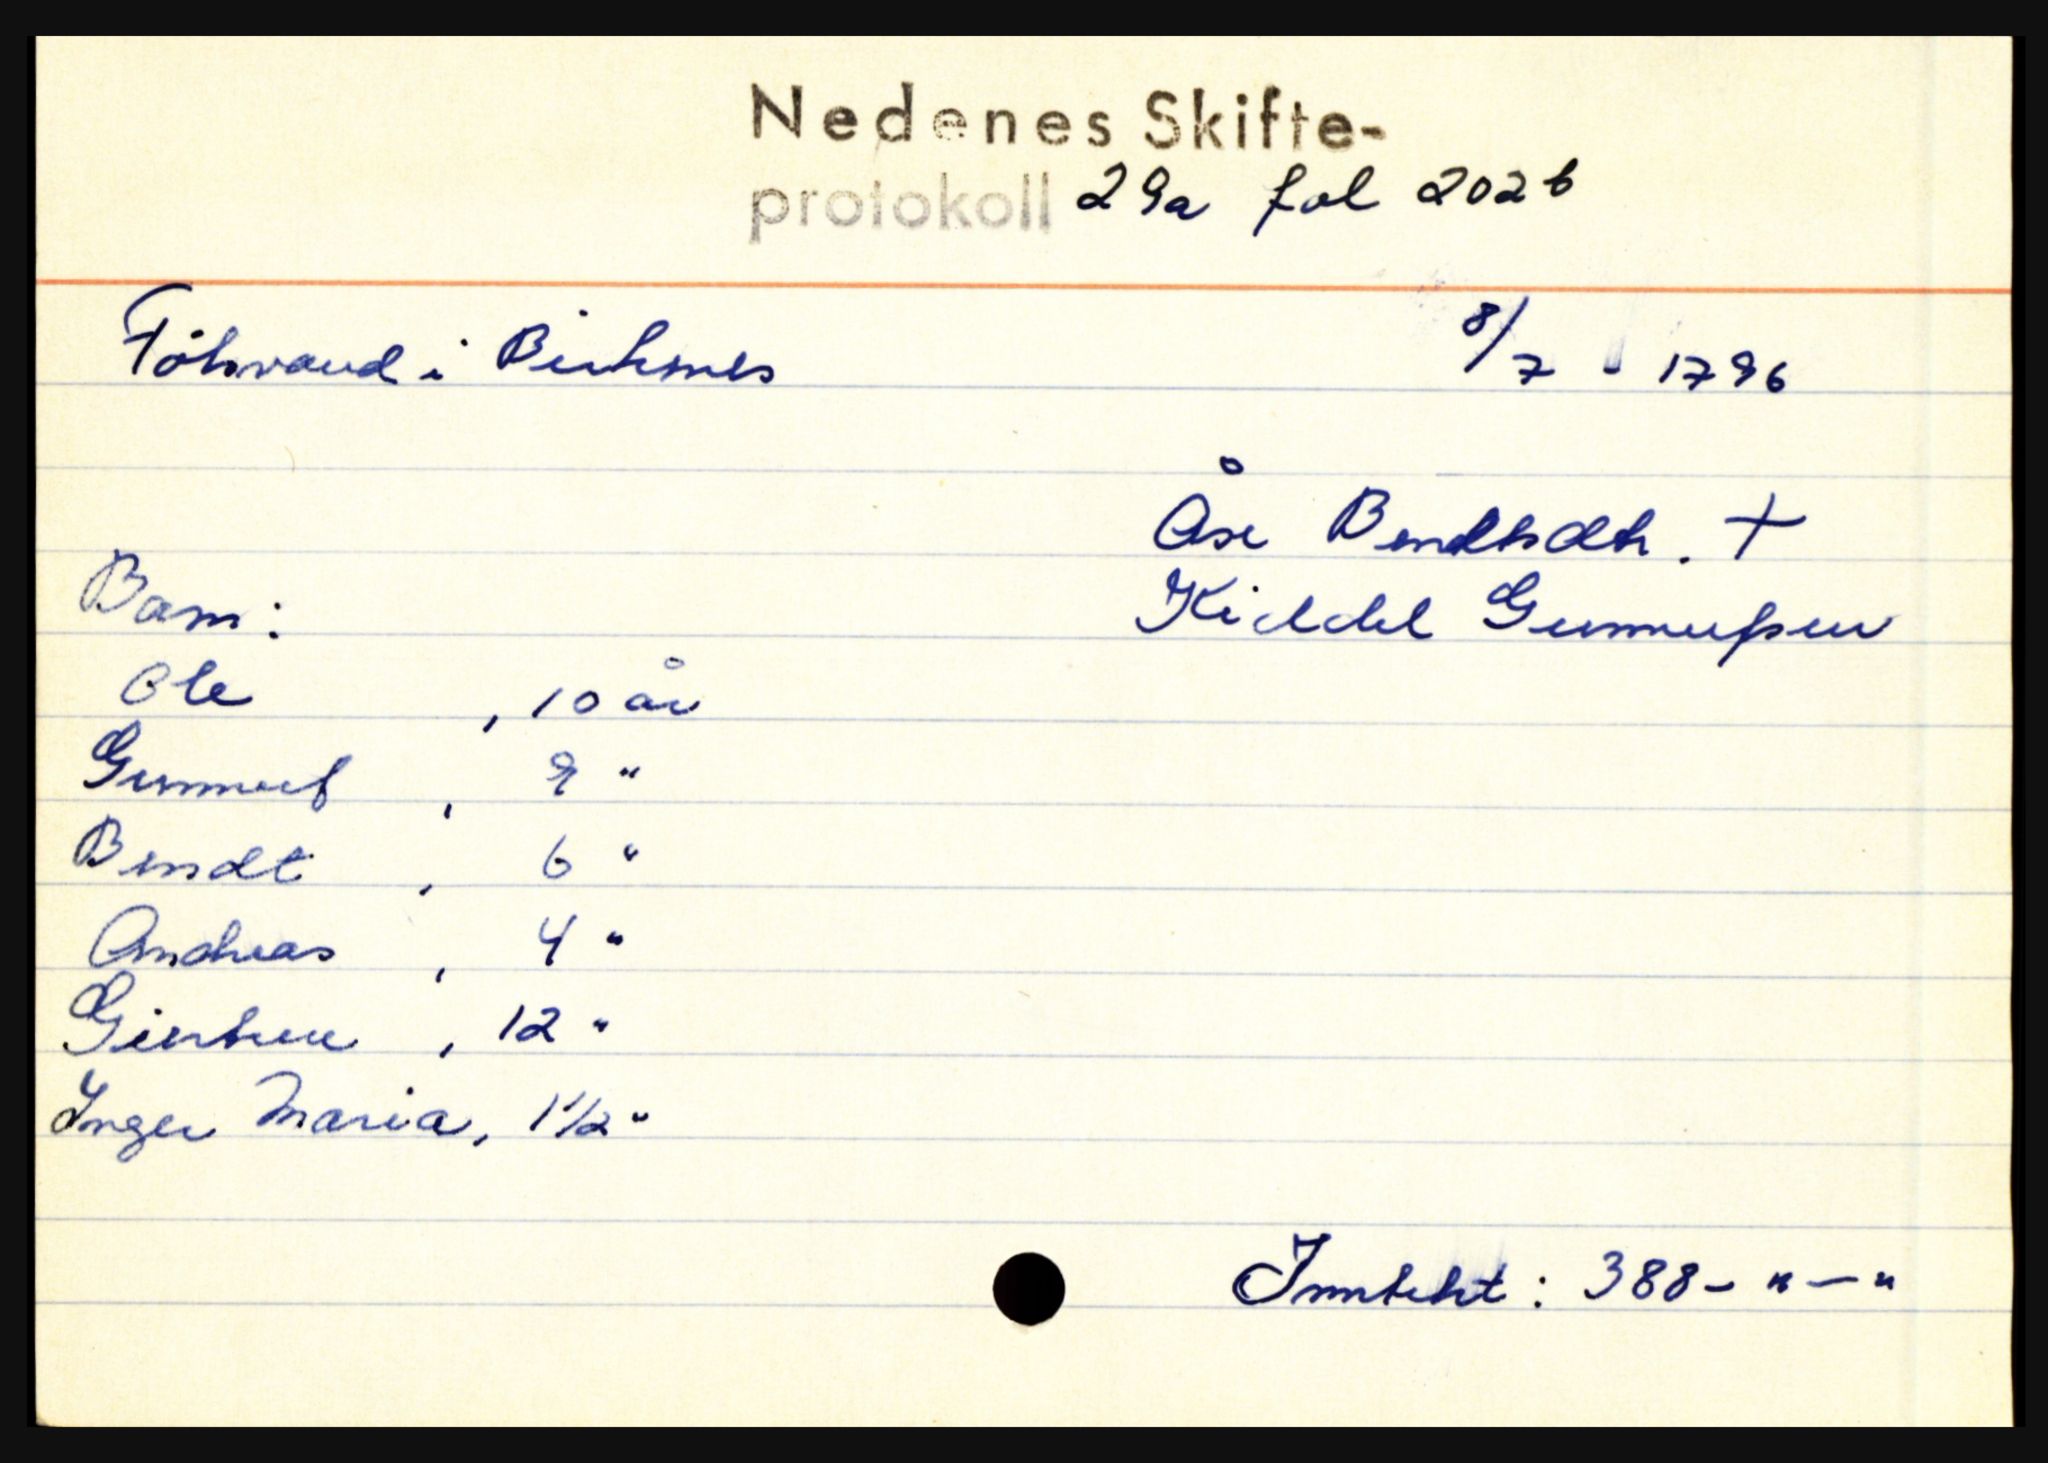 Nedenes Skifte-
protokoll 29a fol 202b
i Birkenes 8/7 - 1796
Åse Bendtsdtr. +
Barn:
Kieddel Gunnufsen
Ole , 10 år
Gunnuf , 9 "
Bendt , 6 "
Andreas , 4 "
, 12 "
Inger Maria, 1 1/2 "
Inntekt : 388 - " - "